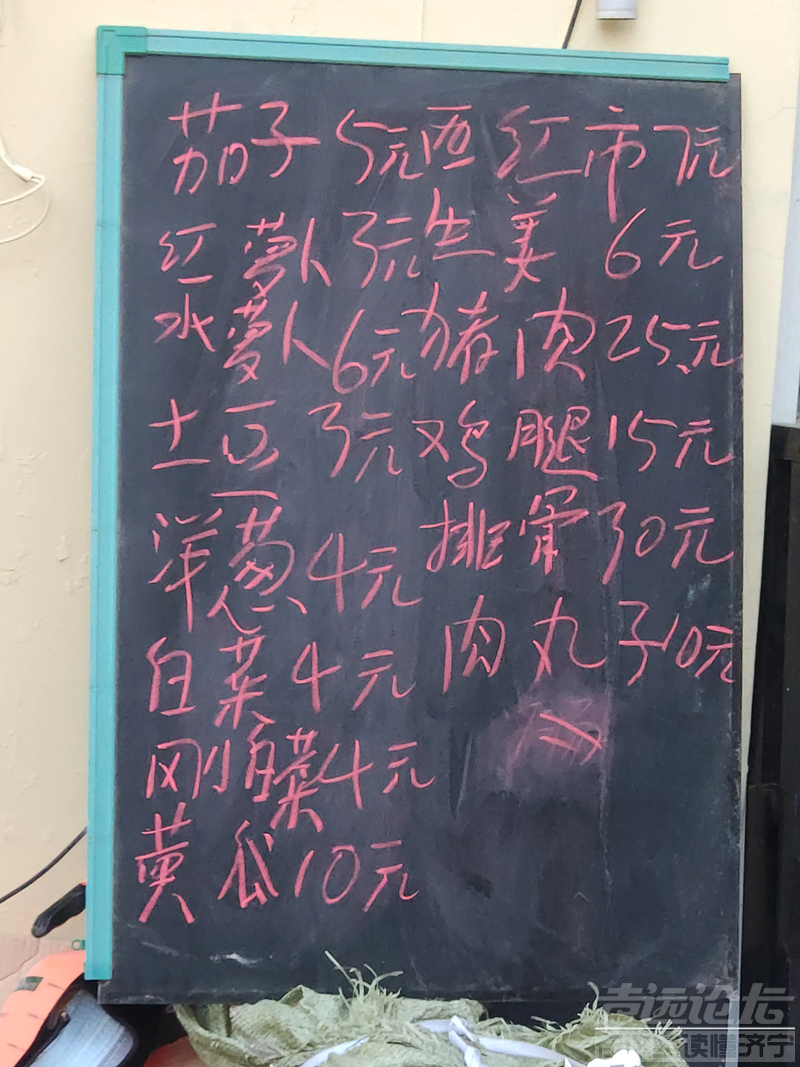 茄子5元西红市7元
红萝卜3元生姜6元
水萝卜6元猪肉25元
土豆3元鸡腿15元
洋葱4元排骨30元
白菜4元肉丸子10元
刚白菜4元
黄瓜10元
读懂济宁